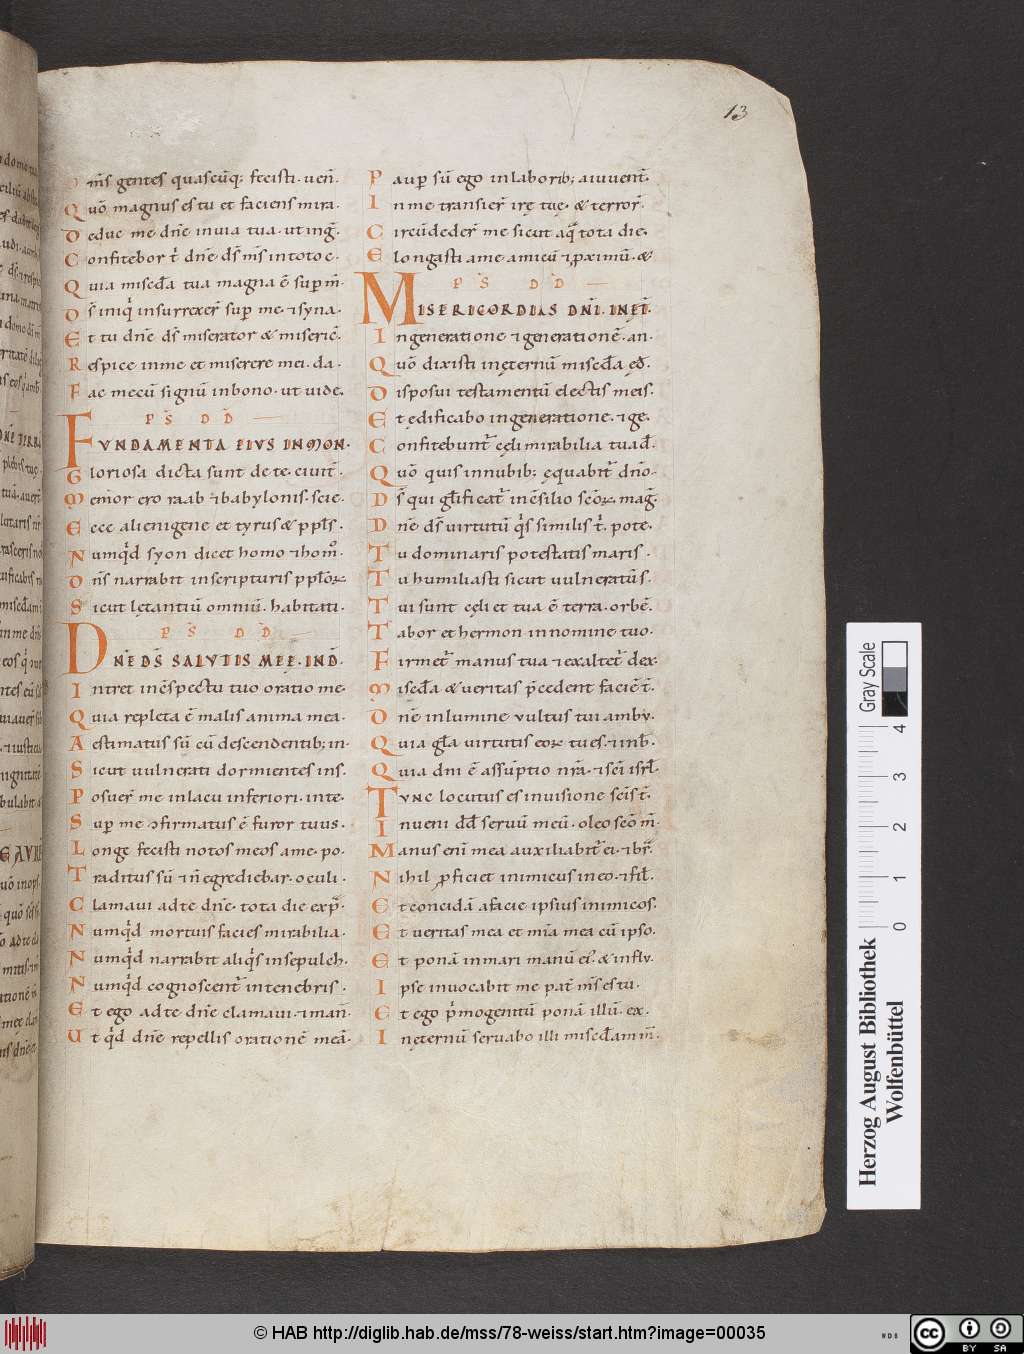 13
Om̄s gentes quascūq; fecisti . ueñ.
Quō magnus es tu et faciens mira.
Deduc me dn̄e in uia tua . ut ing̃.
Confitebor t̄ dn̄e ds̄ m̄s in toto c.
Quia misc̄da tua magna ē sup m̄.
Ds̄ iniq̄ insurrexer̄ sup me . ⁊ syna.
Et tu dn̄e ds̄ miserator & misericˉ.
Respice in me et miserere mei . da.
Fac mecū signū in bono . ut uide.
PS̄ DD̄
FVNDAMENTA EIVS IN MON.
Gloriosa dicta sunt de te . ciuit̄.
Memor ero raab ⁊ babylonis . scie.
Ecce alienigene et tyrus & ppl̄s.
Numq̄d syon dicet homo ⁊ hom̊.
Dn̄s narrabit in scripturis ppl̄oꝝ
Sicut lętantiū omniū . habitati.
PS̄ DD̄
DN̄E DS̄ SALVTIS MEE . IN D̄.
Intret in c̄spectu tuo oratio me.
Quia repleta ē malis anima mea.
Aestimatus sū cū descendentib; in.
Sicut uulnerati dormientes in s.
Posuer̄ me in lacu inferiori . in te.
Sup me ↄfirmatus ē furor tuus.
Longe fecisti notos meos a me . po.
Traditus sū ⁊ n̄ egrediebar . oculi.
Clamaui ad te dn̄e . tota die exp̄.
Numq̄d mortuis facies mirabilia.
Numq̄d narrabit aliq̄s in sepulch.
Numq̄d cognoscent̄ in tenebris.
Et ego ad te dn̄e clamaui . ⁊ mañ.
Ut q̄d dn̄e repellis orationē meā.
Paup sū ego in laborib; a iuuent̄.
In me transier̄ irę tuę . & terror̄.
Circūdeder̄ me sicut aq̄ tota die.
Elongasti a me amicū ⁊ ꝓximū . &
PS̄ DD̄
MISERICORDIAS DN̄I . IN ĘT̄.
In generatione ⁊ generationē . an.
Quō dixisti in ęternū misc̄da ęd̄.
Disposui testamentū electis meis.
Et ędificabo in generatione . ⁊ ge.
Confitebunt̄ cęli mirabilia tua d̄.
Quō quis in nubib; ęquabit̄ dn̄o.
Ds̄ qui gl̄ificat̄ in c̄silio sc̄oꝝ . mag̃.
Dn̄e ds̄ virtutū q̄s similis t̄ . pote.
Tu dominaris potestatis maris.
Tu humiliasti sicut uulneratū s.
Tui sunt cęli et tua ē terra . orbē.
Tabor et hermon in nomine tuo.
Firmet̄ manus tua ⁊ exaltet̄ dex.
Misc̄da & veritas p̄cedent faciē t̄.
Dn̄e in lumine vultus tui ambv.
Quia gl̄a virtutis eoꝝ tu es . ⁊ in b̄.
Quia dn̄i ē assūptio nr̄a . ⁊ sc̄i isrl̄.
Tvnc locutus es in uisione sc̄is t̄.
Inueni dd̄ seruū meū . oleo sc̄o m̄.
Manus eni mea auxiliabit̄ ei . ⁊ br̄.
Nihil ꝓficiet inimicus in eo . ⁊ fil̄.
Et concidā a facie ipsius inimicos.
Et veritas mea et mīa mea cū ipso.
Et ponā in mari manū ei . & in flv.
Ipse inuocabit me pat̄ m̄s es tu.
Et ego p̄mogenitū ponā illū . ex.
In ęternū seruabo illi misc̄dam m̄.
Gray Scale
0 1 2 3 4
Herzog August Bibliothek
Wolfenbüttel
© HAB http://diglib.hab.de/mss/78-weiss/start.htm?image=00035
cc BY SA